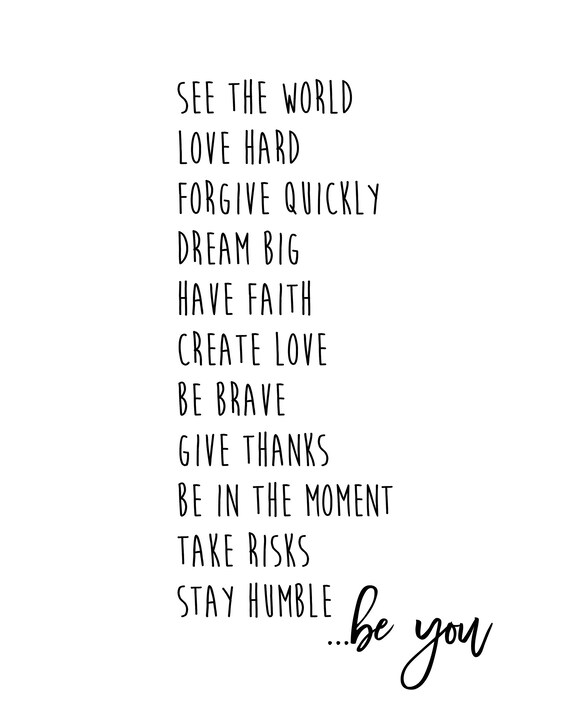 SEE THE WORLD
LOVE HARD
FORGIVE QUICKLY
DREAM BIG
HAVE FAITH
CREATE LOVE
BE BRAVE
GIVE THANKS
BE IN THE MOMENT
TAKE RISKS
STAY HUMBLE
...be you